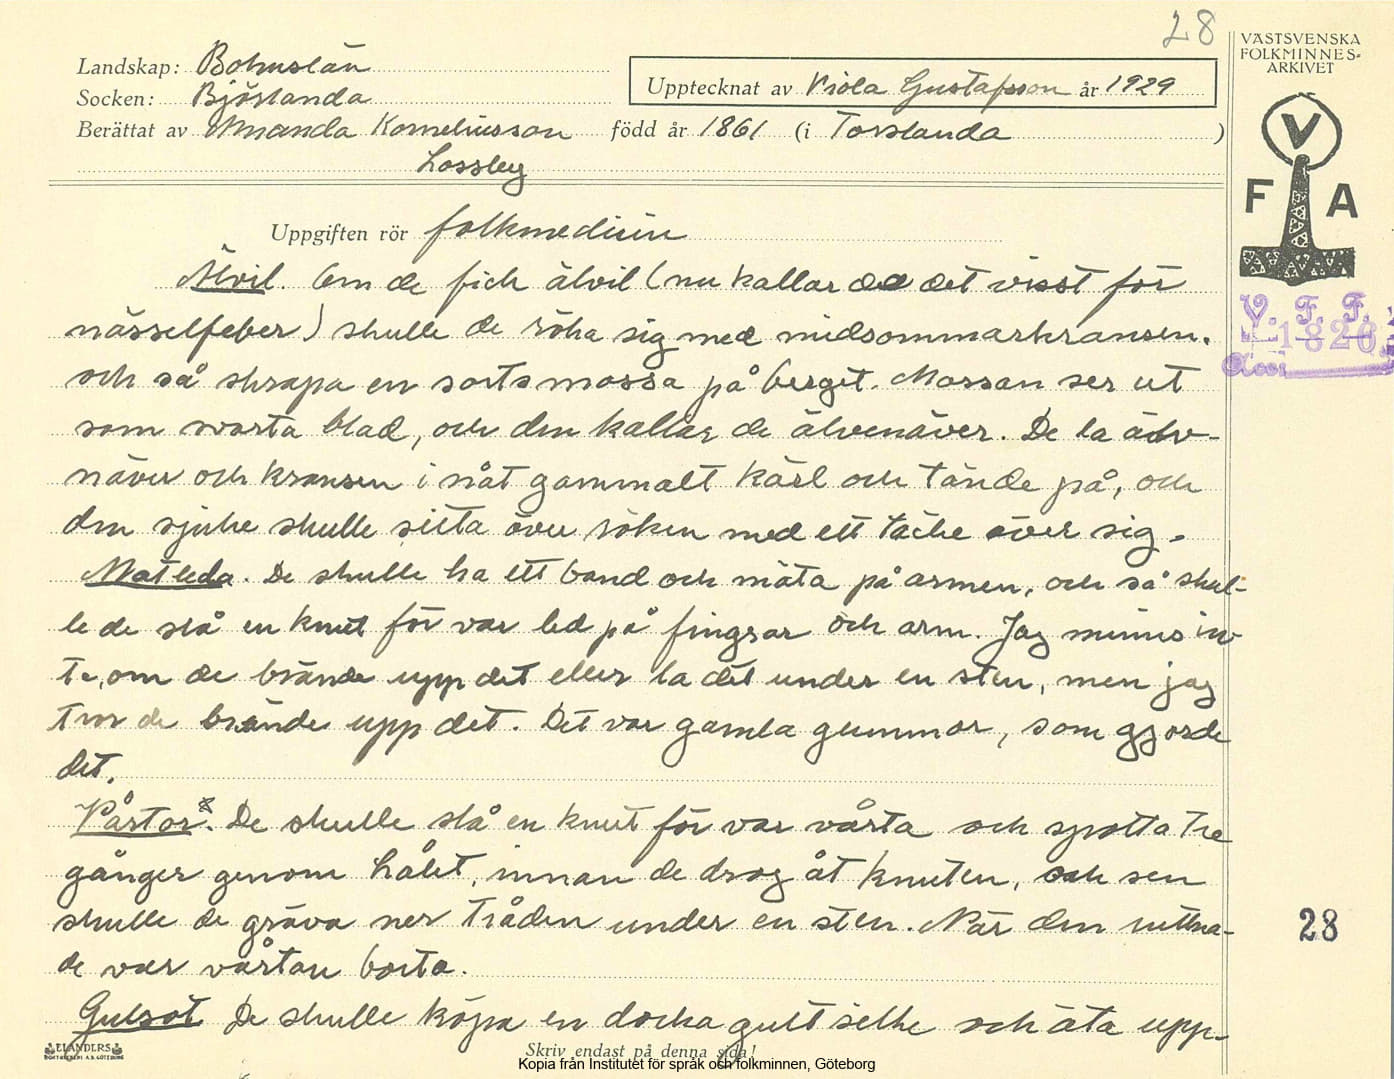 28
Landskap: Bohuslän
Socken: Björlanda
Upptecknat av Viola Gustafsson år 1929
Berättat av Amanda Korneliusson född år 1861 (i Torslanda )
Lossby
Uppgiften rör folkmedicin
Älvil. Om de fick älvil (nu kallar de det visst för
nässelfeber) skulle de röka sig med midsommarkransen.
och så skrapa en sorts mossa på berget. Mossan ser ut
som svarta blad, och den kallar de älvenäver. De la älv-
näver och kransen i nåt gammalt kärl och tände på, och
den sjuke skulle sitta över röken med ett täcke över sig.
Matleda. De skulle ha ett band och mäta på armen, och så skul-
le de slå en knut för var led på fingrar och arm. Jag minns in-
te, om de brände upp det eller la det under en sten, men jag
tror de brände upp det. Det var gamla gummor, som gjorde
det.
Vårtor. De skulle slå en knut för var vårta och spotta tre
gånger genom hålet, innan de drog åt knuten, och sen
skulle de gräva ner tråden under en sten. När den ruttna-
de var vårtan borta.
Gulsot De skulle köpa en docka gult silke och äta upp.
Skriv endast på denna sida!
ELANDERS
BOKTRYCKERI A.B. GÖTEBORG
Kopia från Institutet för språk och folkminnen, Göteborg
VÄSTSVENSKA
FOLKMINNES-
ARKIVET
V
F A
V. F. F.
1820
28